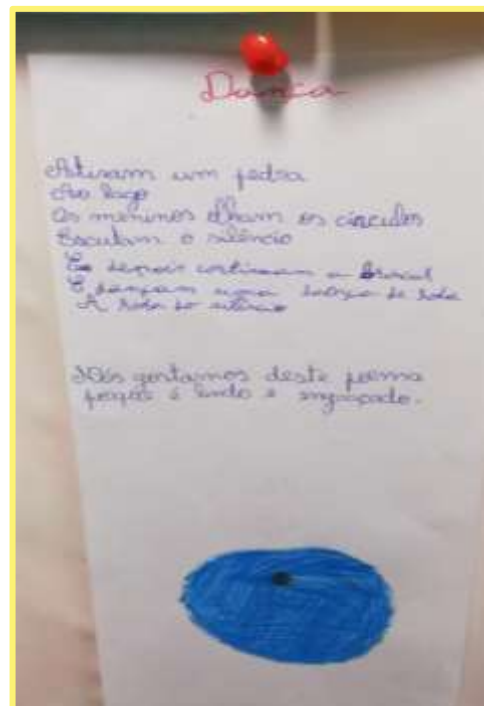 Dança
Atiram um pedra
Ao lago
Os meninos olham os círculos
Escutam o silêncio
E depois continuam a brincar
E dançam uma dança de roda
A roda do silêncio
Nós gostamos deste poema
porque é lindo e engraçado.